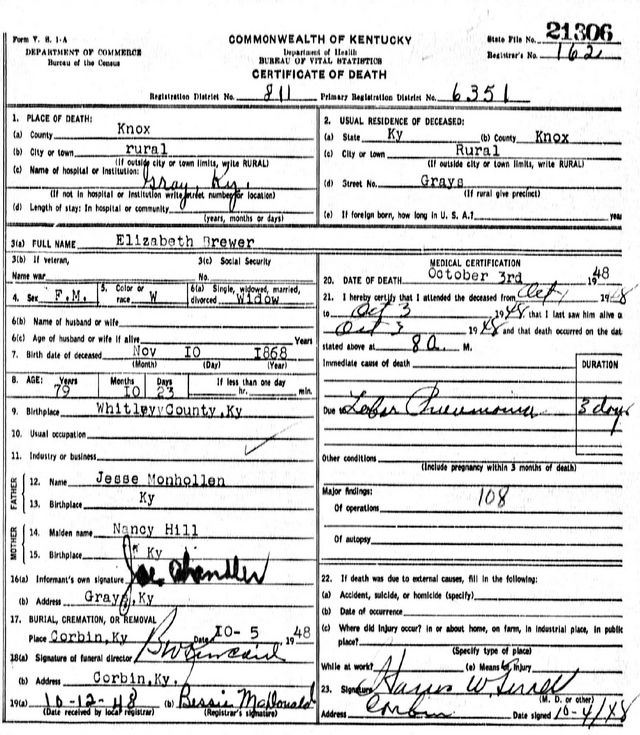 Form V. S. 1-A
DEPARTMENT OF COMMERCE
Bureau of the Census
COMMONWEALTH OF KENTUCKY
Department of Health
BUREAU OF VITAL STATISTICS
CERTIFICATE OF DEATH
State File No. 21306
Registrar's No. 162
Registration District No. 811 Primary Registration District No. 6351
1. PLACE OF DEATH:
(a) County Knox
(b) City or town rural
(If outside city or town limits, write RURAL)
(c) Name of hospital or institution: Gray, Ky.
(If not in hospital or institution write street number or location)
(d) Length of stay: In hospital or community
(years, months or days)
2. USUAL RESIDENCE OF DECEASED:
(a) State Ky (b) County Knox
(c) City or town Rural
(If outside city or town limits, write RURAL)
(d) Street No. Grays
(If rural give precinct)
(e) If foreign born, how long in U. S. A.? years
3(a) FULL NAME Elizabeth Brewer
3(b) If veteran, 3(c) Social Security
Name war No.
4. Sex F.M. 5. Color or race W 6(a) Single, widowed, married, divorced Widow
6(b) Name of husband or wife
6(c) Age of husband or wife if alive Years
7. Birth date of deceased Nov 10 1868
(Month) (Day) (Year)
8. AGE: Years Months Days If less than one day
79 10 23 hr. min.
9. Birthplace Whitleyy County, Ky
10. Usual occupation
11. Industry or business
FATHER
12. Name Jesse Monhollen
13. Birthplace Ky
MOTHER
14. Maiden name Nancy Hill
15. Birthplace Ky
16(a) Informant's own signature Joe Chandler
(b) Address Grays, Ky
17. BURIAL, CREMATION, OR REMOVAL
Place Corbin, Ky Date 10-5 1948
18(a) Signature of funeral director
(b) Address Corbin, Ky.
19(a) 10-12-48 (b) Bessie MacDonald
(Date received by local registrar) (Registrar's signature)
MEDICAL CERTIFICATION
20. DATE OF DEATH October 3rd 1948
21. I hereby certify that I attended the deceased from Oct 1 1948
to Oct 3 1948 that I last saw him alive o
Oct 3 1948 and that death occurred on the dat
stated above at 8 a. M.
Immediate cause of death DURATION
Due to Lobar Pneumonia 3 days
Other conditions
(Include pregnancy within 3 months of death)
Major findings: 108
Of operations
Of autopsy
22. If death was due to external causes, fill in the following:
(a) Accident, suicide, or homicide (specify)
(b) Date of occurrence
(c) Where did injury occur? in or about home, on farm, in industrial place, in public
place?
(Specify type of place)
While at work? (e) Means of injury
23. Signature
(M. D. or other)
Address Corbin Date signed 10-4/48